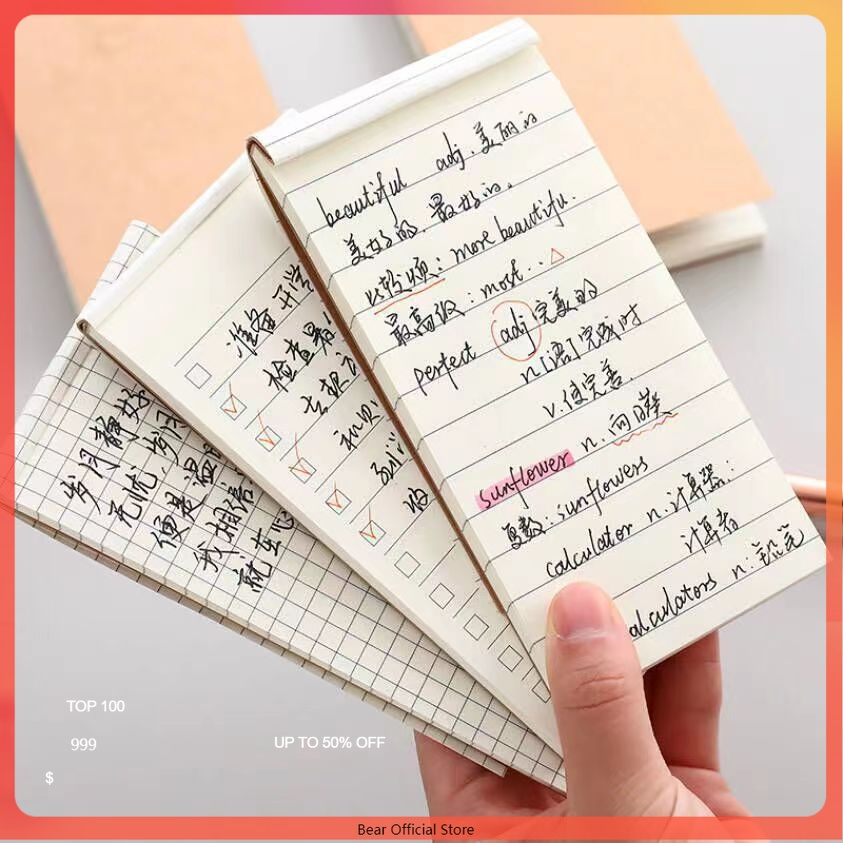 beautiful adj. 美丽的
美好的. 最好的.
比较级: more beautifu.
最高级: most..
perfect adj 完美的
n.[语]完成时
v.使完善.
sunflower n. 向日葵
复数: sunflowers
calculator n. 计算器:
计算者
alculators n:
准备开学
检查暑
岁月静好
无忧, 岁月
便是温
我相信
就在
TOP 100
999
UP TO 50% OFF
$
Bear Official Store